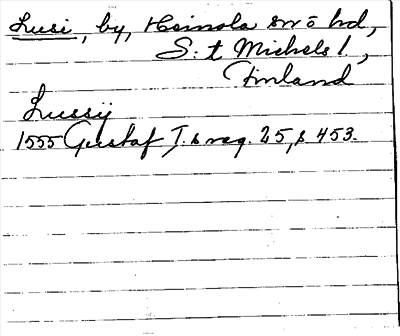 Lusi, by, Heinola sn o hd,
S:t Michels l.,
Finland
Lussij
1555 Gustaf I:s reg. 25, s 453.